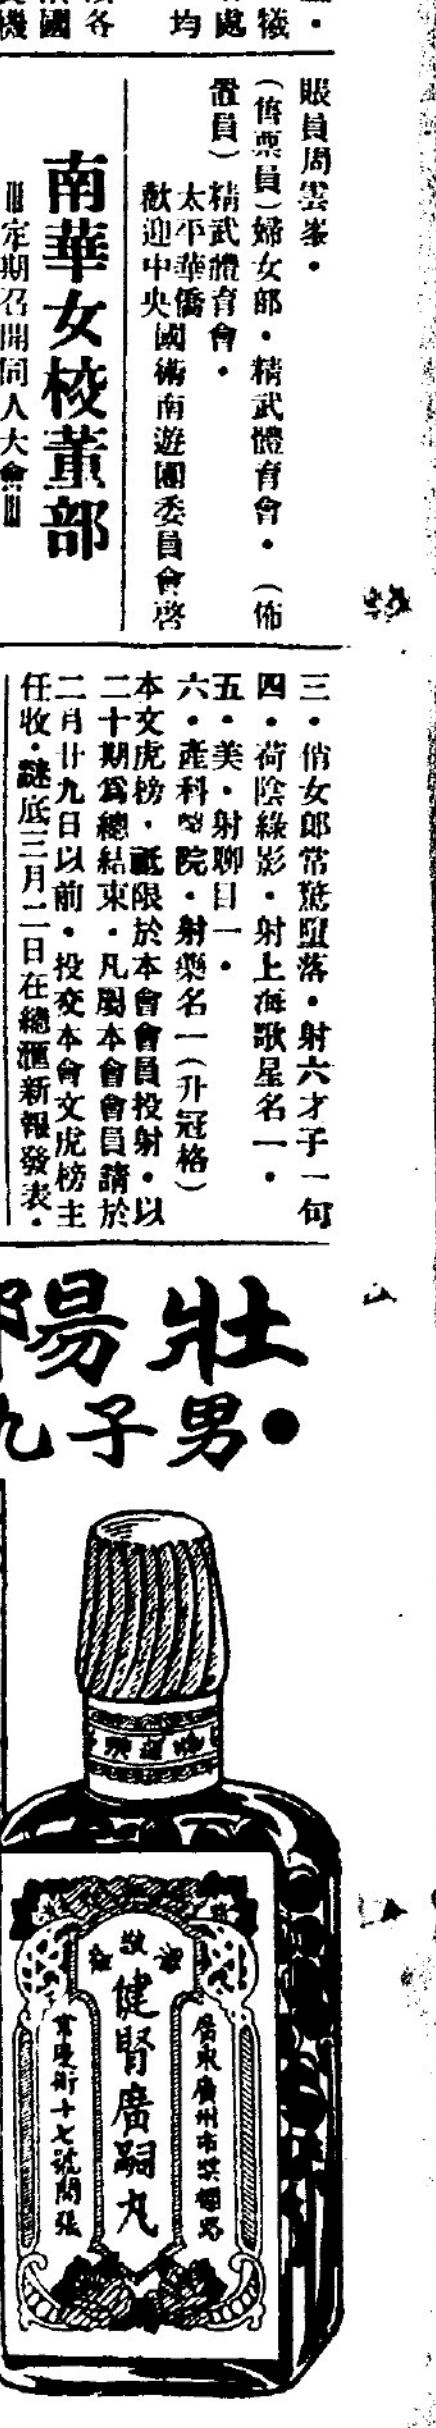 犧・
處
均
各
國
機
賬員周雲峯・
(售票員)婦女部・精武體育會・(佈
置員)精武體育會・
太平華僑
歡迎中央國術南遊團委員會啓
南華女校董部
定期召開同人大會
三・俏女郎常驚墮落・射六才子一句
四・荷陰綠影・射上海歌星名一・
五・美・射聊目一・
六・產科醫院・射藥名一(升冠格)
本文虎榜・祗限於本會會員投射・以
二十期爲總結束・凡屬本會會員請於
二月廿九日以前・投交本會文虎榜主
任收・謎底三月二日在總匯新報發表・
壯陽
●男子丸
健腎廣嗣丸
廣東廣州市漿欄路
常慶街十七號開張